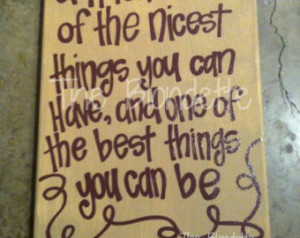 of the nicest
things you can
Have, and one of
the best things
you can be
The Blondette